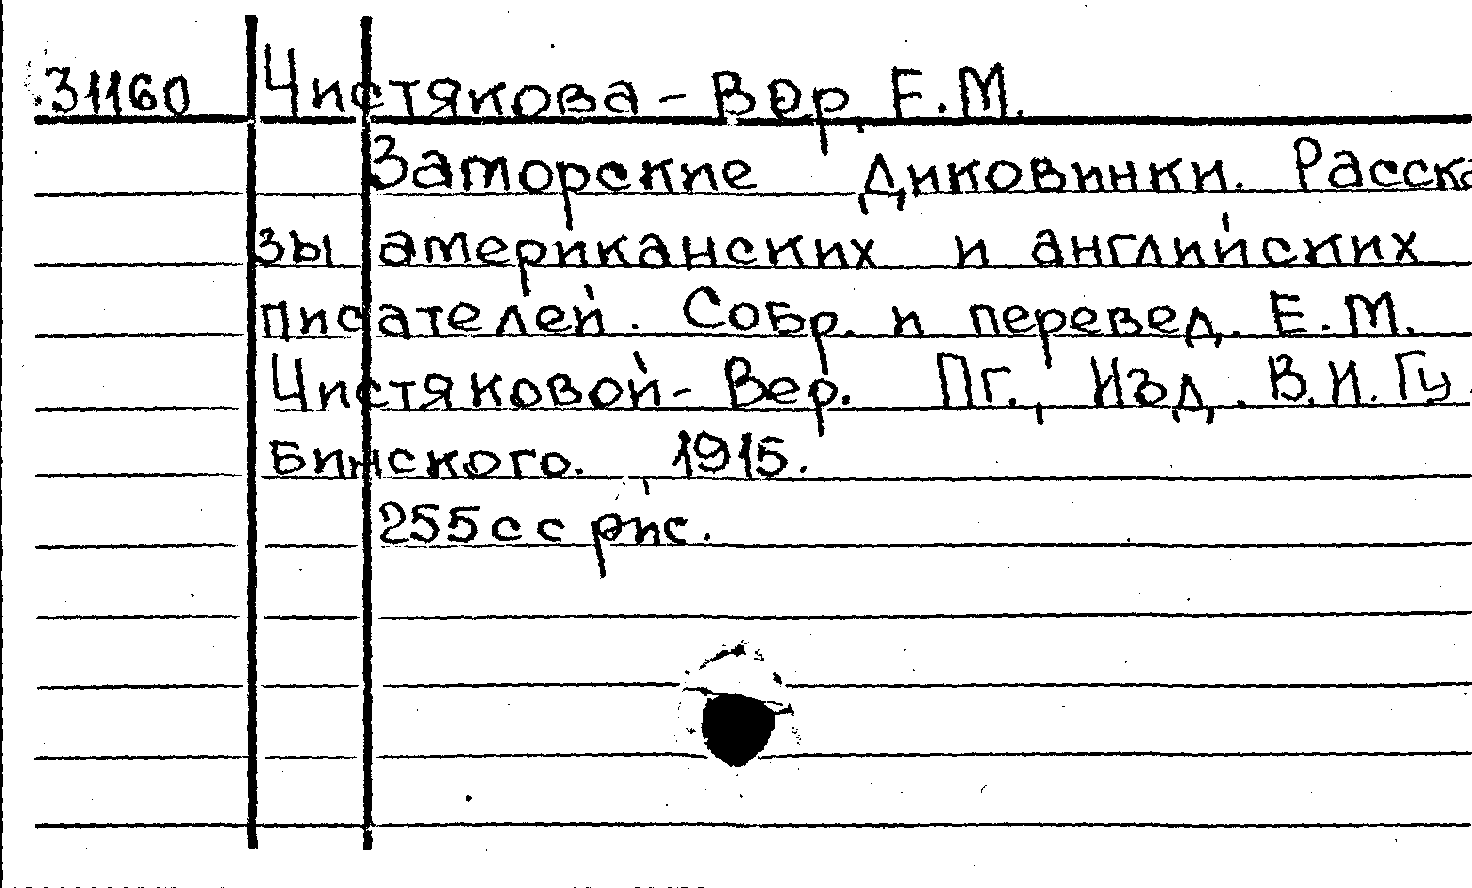 31160 Чистякова-Вер, Е.М.
Заморские диковинки. Расска
зы американских и английских
писателей. Собр. и перевед. Е.М.
Чистяковой-Вер. Пг., Изд. В.И.Гу
бинского. 1915.
255 с с рис.